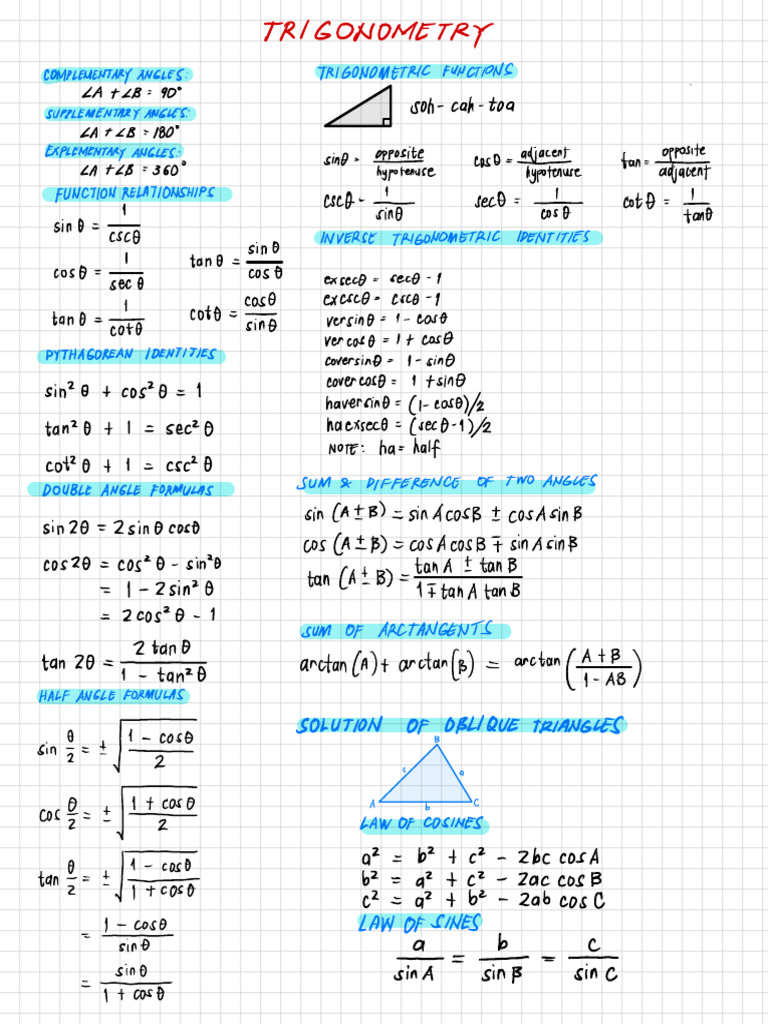 TRIGONOMETRY
COMPLEMENTARY ANGLES:
∠A + ∠B = 90°
SUPPLEMENTARY ANGLES:
∠A + ∠B = 180°
EXPLEMENTARY ANGLES:
∠A + ∠B = 360°
FUNCTION RELATIONSHIPS
sin θ = 1/cscθ
cosθ = 1/sec θ
tanθ = sinθ/cosθ
tanθ = 1/cotθ
cotθ = cosθ/sinθ
PYTHAGOREAN IDENTITIES
sin² θ + cos² θ = 1
tan² θ + 1 = sec² θ
cot² θ + 1 = csc² θ
DOUBLE ANGLE FORMULAS
sin 2θ = 2 sin θ cosθ
cos 2θ = cos² θ - sin² θ
= 1 - 2 sin² θ
= 2 cos² θ - 1
tan 2θ = 2 tanθ/(1 - tan² θ)
HALF ANGLE FORMULAS
sin θ/2 = ± √((1 - cosθ)/2)
cos θ/2 = ± √((1 + cosθ)/2)
tan θ/2 = ± √((1 - cosθ)/(1 + cosθ))
= (1 - cosθ)/sinθ
= sinθ/(1 + cosθ)
TRIGONOMETRIC FUNCTIONS
soh - cah - toa
sinθ = opposite/hypotenuse
cosθ = adjacent/hypotenuse
tan = opposite/adjacent
cscθ - 1/sinθ
secθ = 1/cosθ
cotθ = 1/tanθ
INVERSE TRIGONOMETRIC IDENTITIES
exsecθ = secθ - 1
excscθ = cscθ - 1
versinθ = 1 - cosθ
vercosθ = 1 + cosθ
coversinθ = 1 - sinθ
covercosθ = 1 + sinθ
haversinθ = (1 - cosθ)/2
haexsecθ = (secθ - 1)/2
NOTE: ha = half
SUM & DIFFERENCE OF TWO ANGLES
sin (A ± B) = sin A cosB ± cosA sinB
cos (A ± B) = cosA cosB ∓ sinA sinB
tan (A ± B) = (tanA ± tanB)/(1 ∓ tanA tanB)
SUM OF ARCTANGENTS
arctan(A) + arctan(B) = arctan((A + B)/(1 - AB))
SOLUTION OF OBLIQUE TRIANGLES
B
c
a
A
b
C
LAW OF COSINES
a² = b² + c² - 2bc cosA
b² = a² + c² - 2ac cosB
c² = a² + b² - 2ab cosC
LAW OF SINES
a/sinA = b/sinB = c/sinC